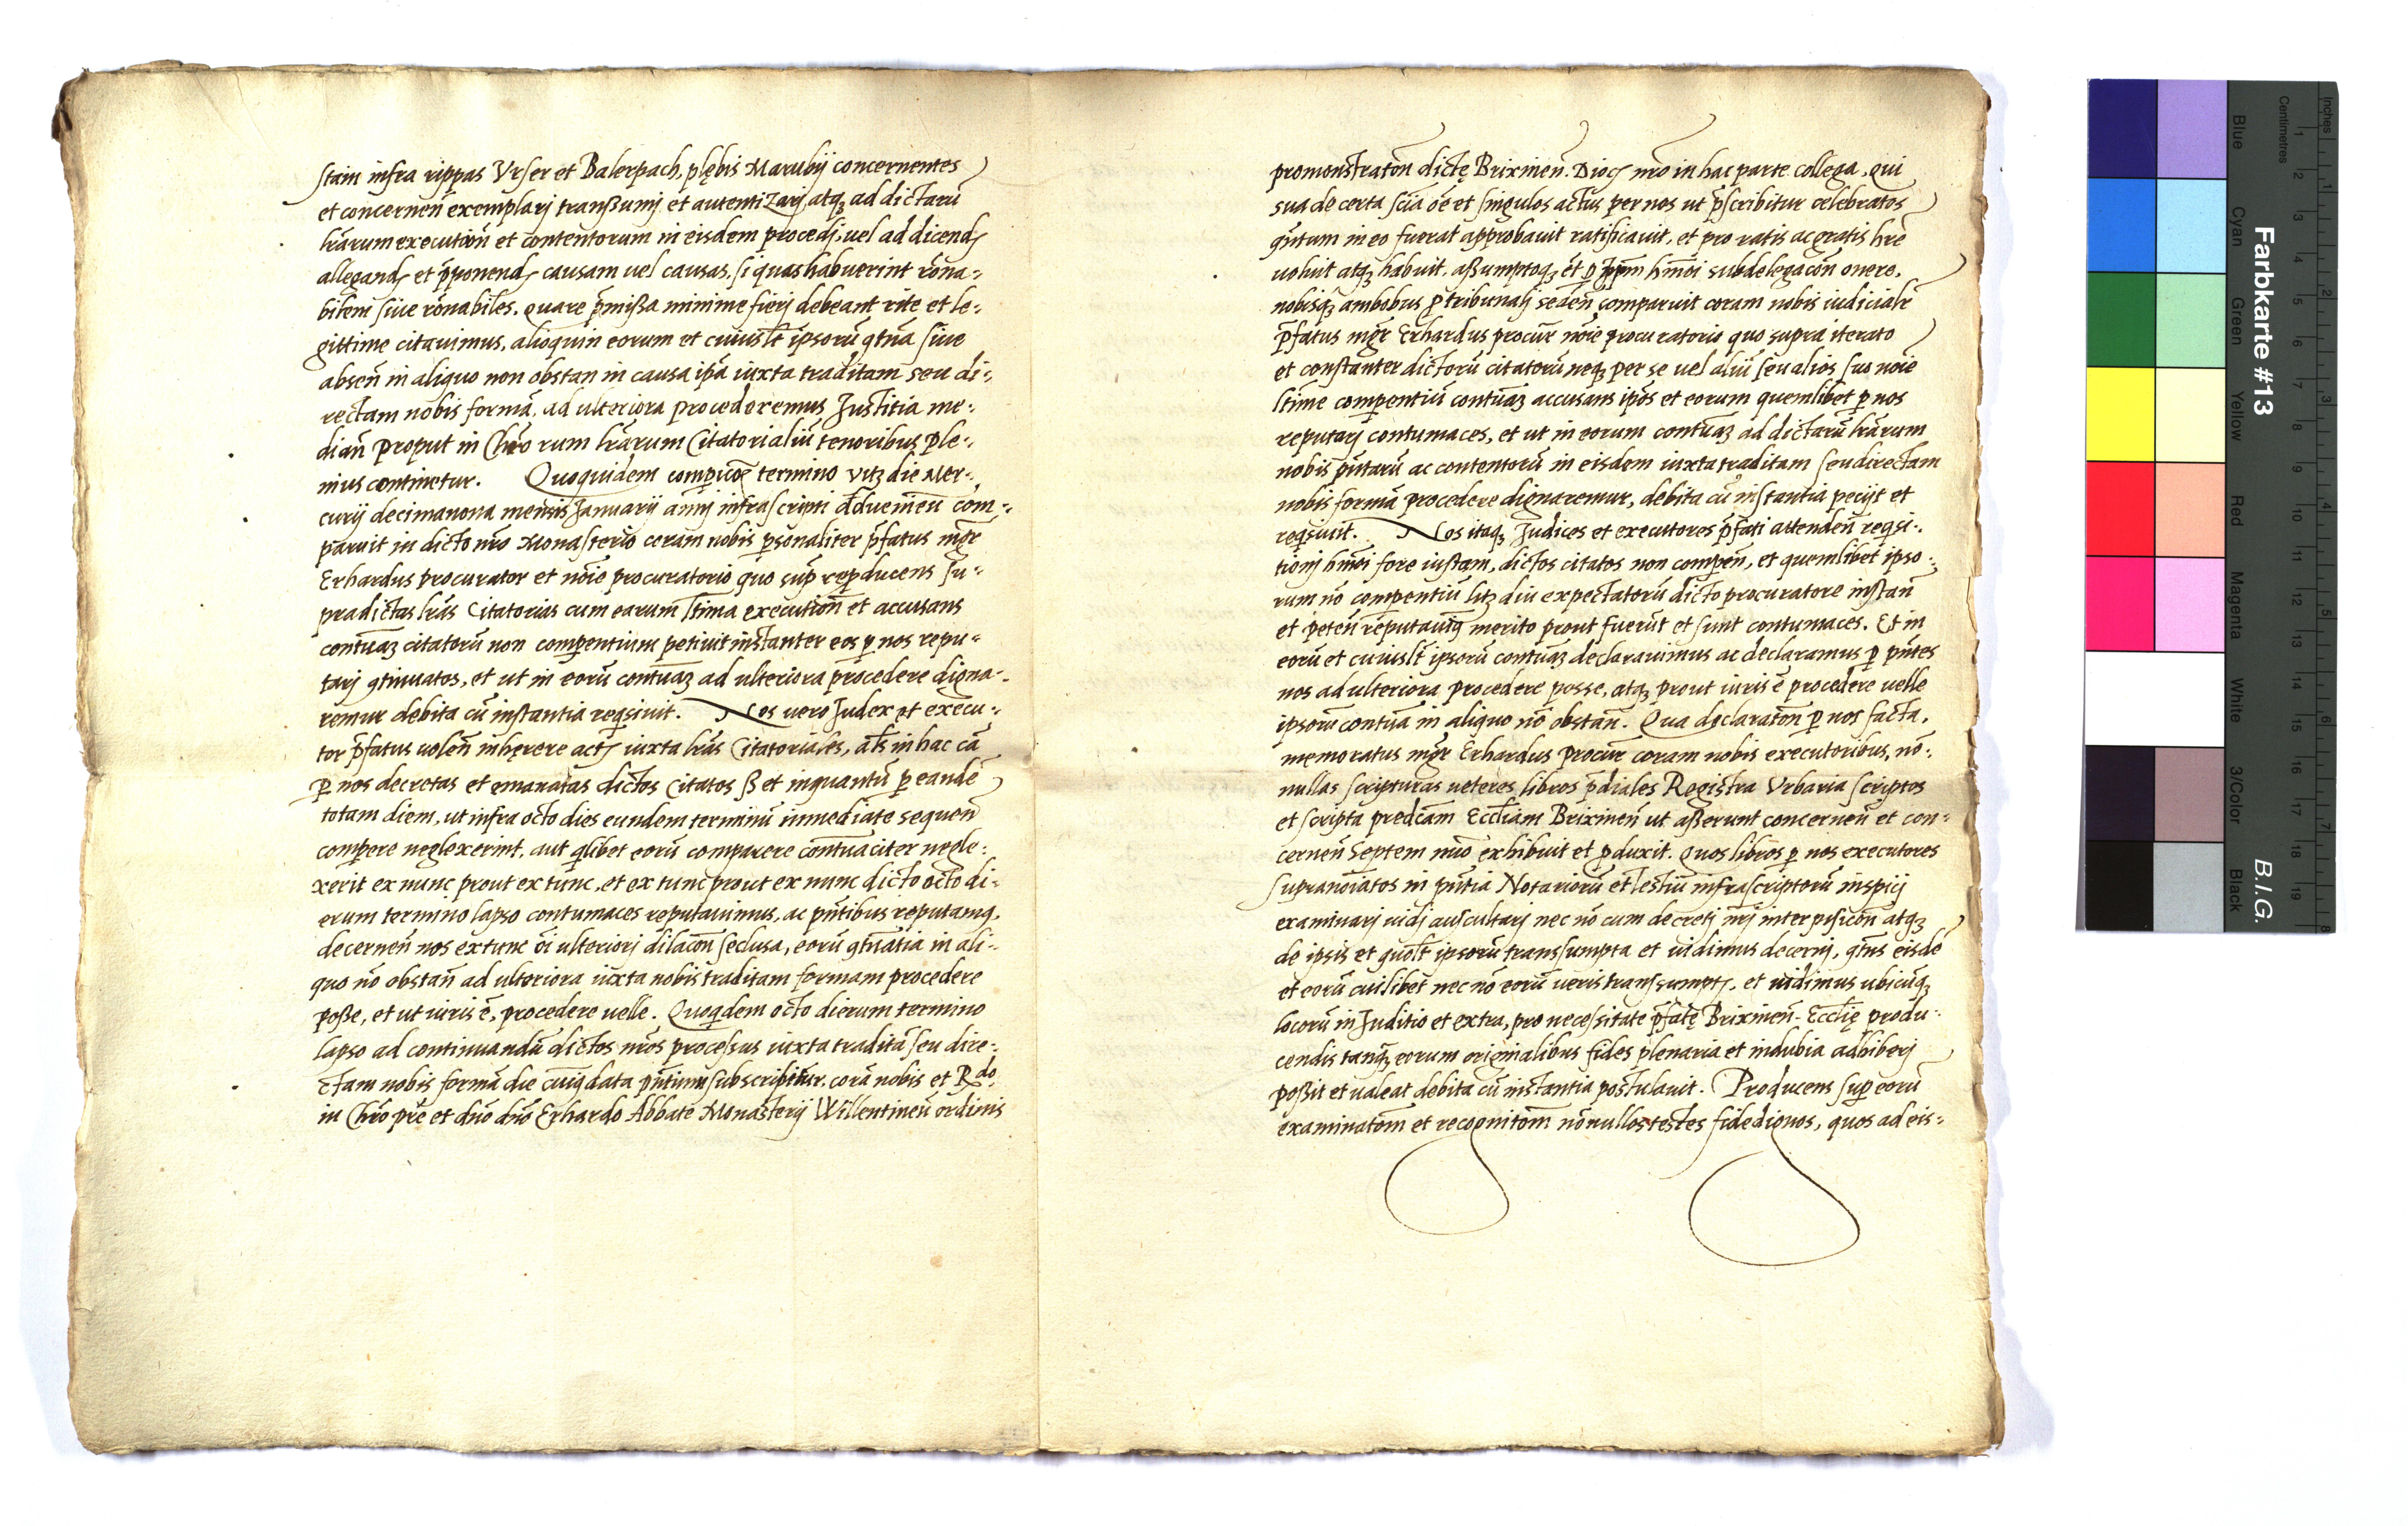 stain infra rippas Vrser et Balerpach, plębis Marubij concernentes
et concerneñ exemplarj transsumj et autentizarj, atqꝫ ad dictarū
lr̄arum execution̄ et contentorum in eisdem procedj, uel ad dicendꝭ
allegandꝭ et p̄ponendꝭ causam uel causas, si quas habuerint rōna⸗
bilem siue rōnabiles. quare p̄missa minime fierj debeant rite et le⸗
gittime citauimus, alioquin eorum et cuiuslt̄ ipsorū ꝯtua siue
abseñ in aliquo non obstan in causa ip̄a iuxta traditam seu di⸗
rectam nobis formā, ad ulteriora procederemus Justitia me⸗
diañ proput in lr̄arum Citatorialiū tenoribus ple⸗
nius continetur. Quoquidem termino vitꝫ die Mer⸗
curij decimanona mensis Januarij annj infrascripti com⸗
paruit in dicto nr̄o Monasterio coram nobis ꝑsonaliter p̄fatus mgr̄
Erhardus procurator et nōie procuratorio quo sup̄ rep̄ducens su⸗
pradictas lr̄as Citatorias cum earum ltīma execution̄ et accusans
contuāꝫ citatorū non comꝑentium petiuit instanter eos ꝑ nos repu⸗
tarj ꝯtinuatos, et ut in eorū contuāꝫ ad ulteriora procedere digna⸗
remur debita cū instantia reqsiuit. Nos uero Judex et execu⸗
tor p̄fatus uoleñ inhęrere actꝭ iuxta lr̄as Citatoriales, al̄s in hac cā
ꝑ nos decretas et emanatas dictos Citatos ß et inquantū ꝑ eandē
totam diem, ut infra octo dies eundem terminū immediate sequeñ
comꝑere neglexerint, aut qlibet eorū comparere contuāciter negle⸗
xerit ex nunc prout ex tūnc, et ex tunc prout ex nunc dicto octo di⸗
erum termino lapso contumaces reputauimus, ac pn̄tibus reputamꝗ,
decerneñ nos ex tunc oī ulteriorj dilacōn seclusa, eorū ꝯtuātia in ali⸗
quo nō obstañ ad ulteriora iuxta nobis traditam formam procedere
posse, et ut iuris ē, procedere uelle. Quoqdem octo dierum termino
lapso ad continuandū dictos nr̄os processus iuxta traditā seu dire⸗
ctam nobis formā die cuiꝗ data pn̄tium subscribitur. corā nobis et Rdo.
in Chr̄o pr̄e et dn̄o dn̄o Erhardo Abbate Monasterij Willentineñ ordinis
promonstratōn dictę Brixineñ. Diocꝭ nr̄o in hac parte collega, qui
sua de certa scīa ōe et singulos actus per nos ut p̄scribitur celebratos
qn̄tum in eo fuerat approbauit ratificauit, et pro ratis ac gratis hr̄e
uoluit atqꝫ habuit, assumptoqꝫ ēt ꝑ hmōi subdelegacōn onere,
nobisqꝫ ambobus ꝑ tribunalj sedeñ comparuit coram nobis iudicialr̄
p̄fatus mgr̄ Erhardus procur̄ nōie procuratorio quo supra iterato
et constanter dictorū citatorū neqꝫ per se uel aliū seu alios suo nōie
ltīme comꝑentiū contuāꝫ accusans ip̄os et eorum quemlibet ꝑ nos
reputarj contumaces, et ut in eorum contuāꝫ ad dictarū lr̄arum
nobis pn̄tarū ac contentorū in eisdem iuxta traditam seu directam
nobis formā procedere dignaremur, debita cū instantia pecijt et
reqsiuit. Nos itaqꝫ Judices et executores p̄fati attendeñ reqsi⸗
tionj hmōi fore iustam, dictos citatos non comꝑeñ, et quemlibet ipso⸗
rum nō compentiū lꝫ diu expectatorū dicto procuratore instañ
et peteñ reputauimꝗ merito prout fuerūt et sunt contumaces. Et in
eorū et cuiuslt̄ ipsorū contuāꝫ declarauimus ac declaramus ꝑ pn̄tes
nos ad ulteriora procedere posse, atqꝫ prout iuris ē procedere uelle
ipsorum contuā in aliquo nō obstañ. Qua declaratōn ꝑ nos facta,
memoratus mgr̄ Erhardus procur̄ coram nobis executoribus, nō⸗
nullas scripturas ueteres libros p̄diales Registra Vrbaria scriptos
et scripta predcām Eccl̄iam Brixineñ ut asserunt concerneñ et con⸗
cerneñ Septem nūo exhibuit et ꝓduxit. Quos libros ꝑ nos executores
supranōiatos in pn̄tia Notariorū et Testiū infrascriptorū inspicj
examinarj uidj auscultarj nec nō cum decretj nr̄j interpōsicōn atqꝫ
de ipsis et quolt̄ ipsorū transsumpta et uidimus decernj, qtn̄s eisdē
et eorū cuilibet nec nō eorū ueris transsumptꝭ, et uidimus ubicūqꝫ
locorū in Juditio et extra, pro necessitate p̄fatę Brixineñ. Eccl̄ię produ⸗
cendis tanqꝫ eorum originalibus fides plenaria et indubia adhiberj
possit et ualeat debita cū instantia postulauit. Producens suꝑ eorū
examinatōm et recognitōm nōnullos testes fidedignos, quos ad eis⸗
Farbkarte #13
B.I.G.
Blue
Cyan
Green
Yellow
Red
Magenta
White
3/Color
Black
Centimetres
Inches
1 2 3 4 5 6 7 8 9 10 11 12 13 14 15 16 17 18 19
1 2 3 4 5 6 7 8